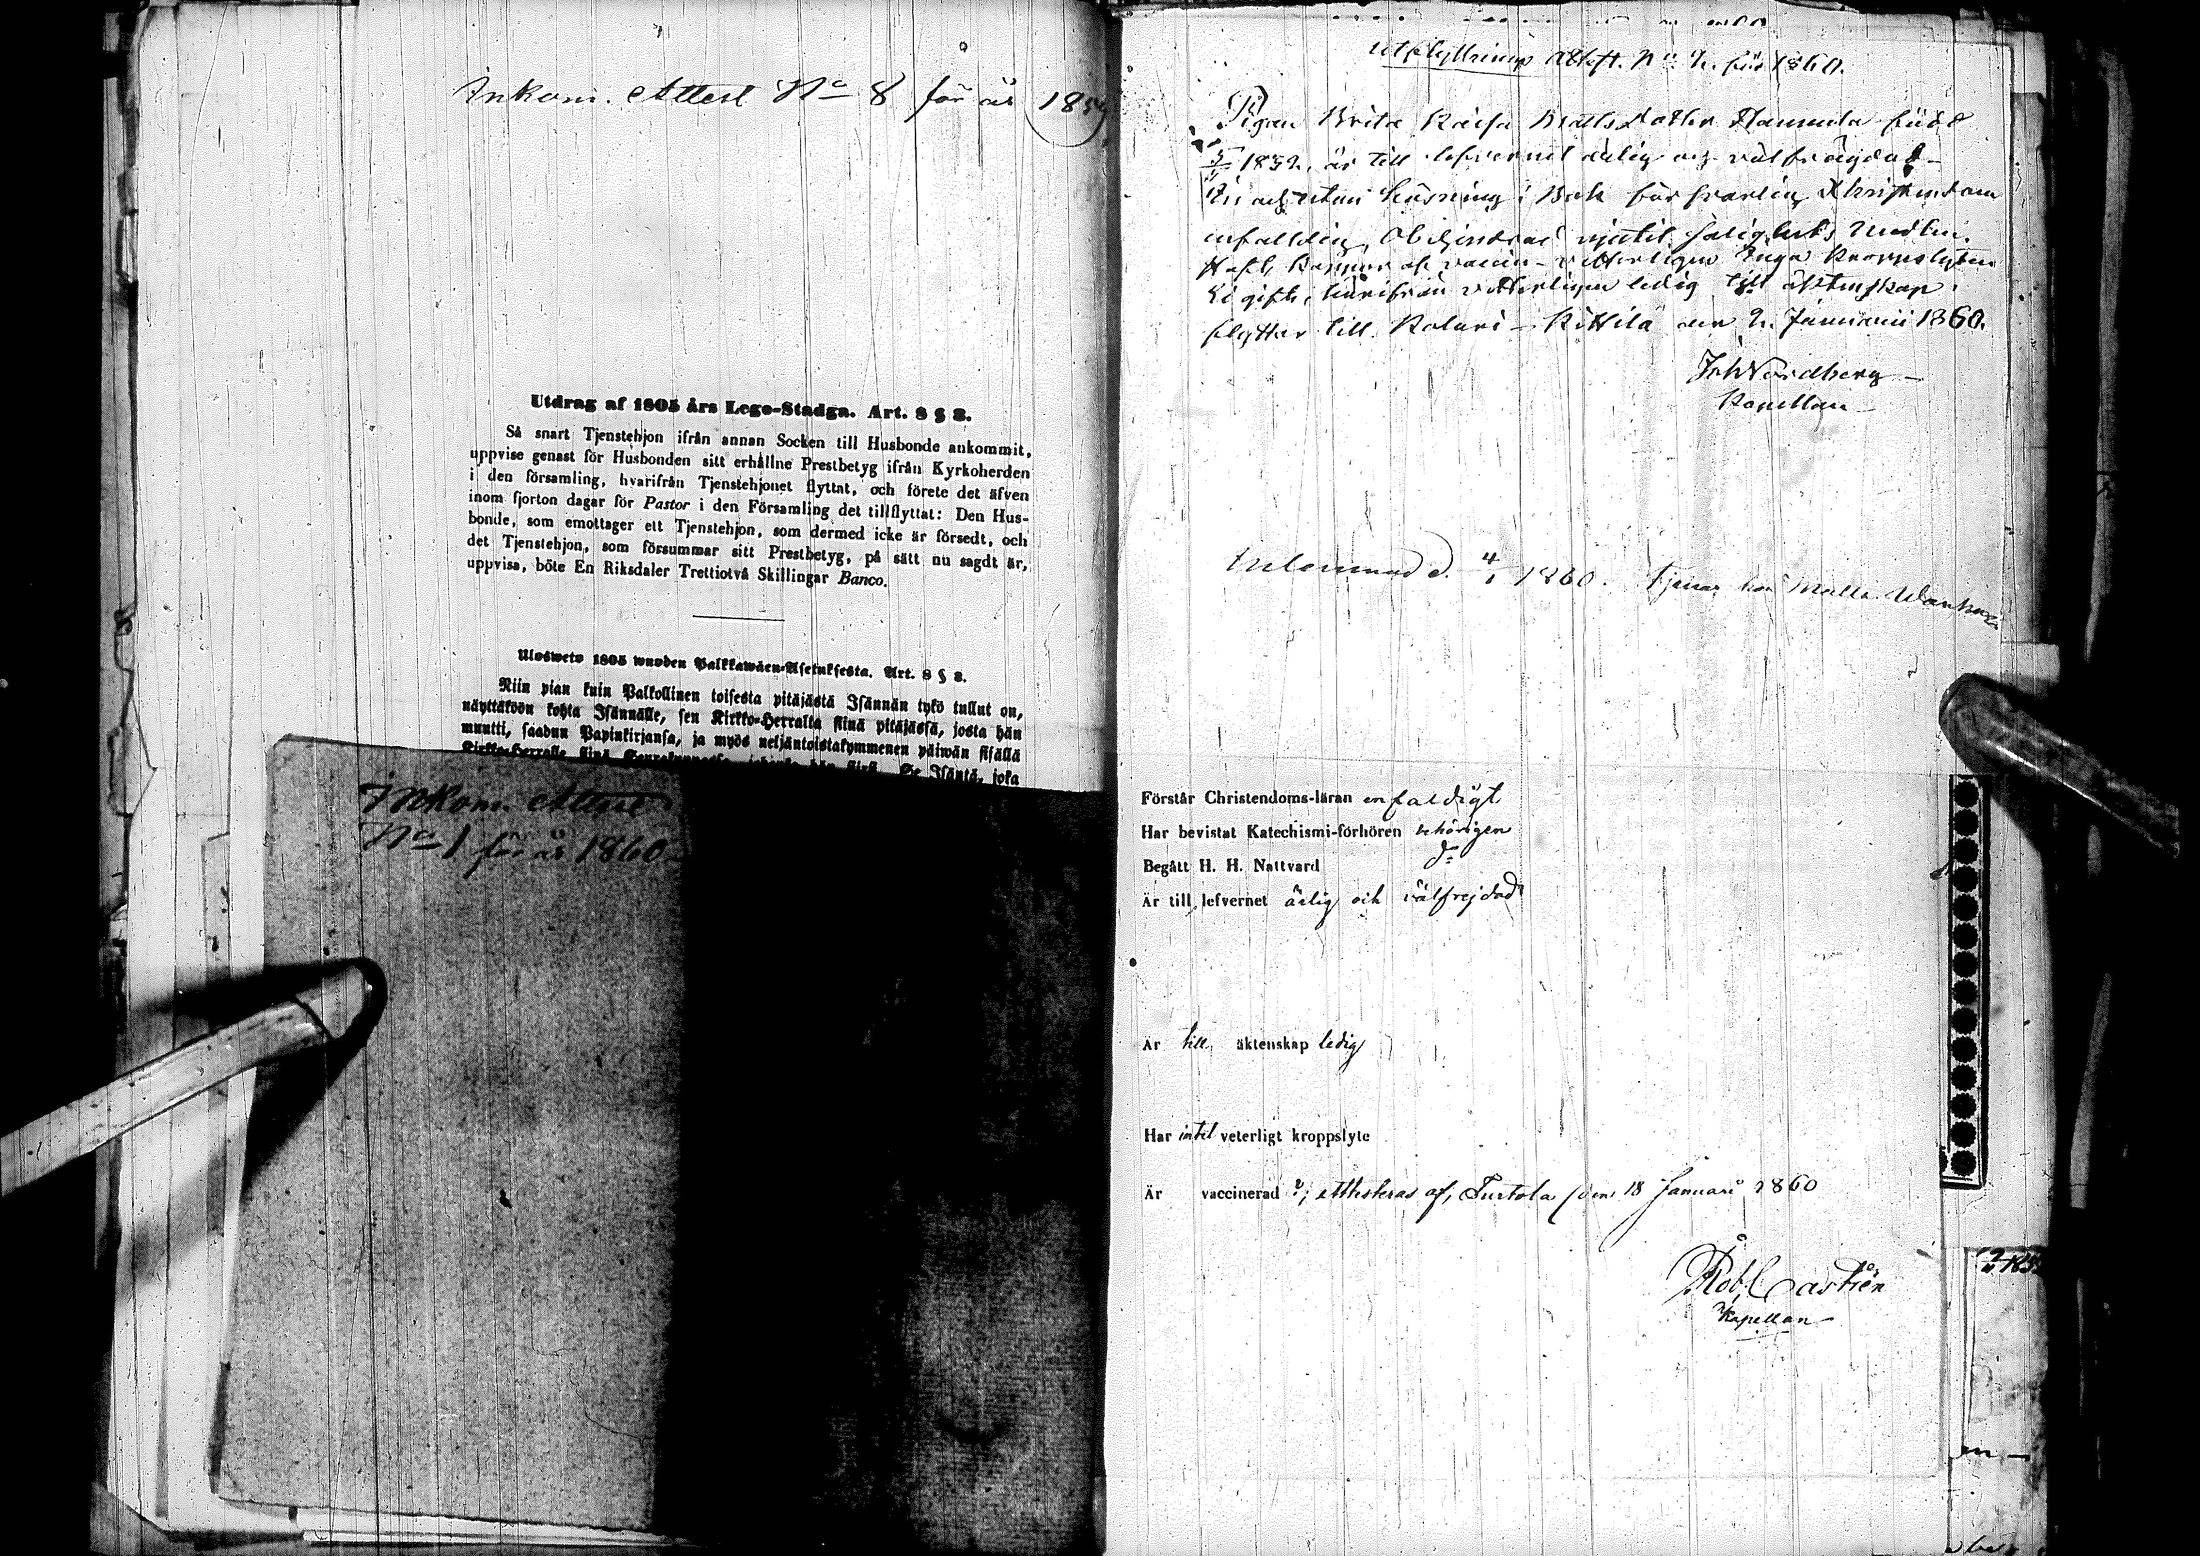 Inkom. Attest No 8 för år 1859
Utdrag af 1805 års Lego-Stadga. Art. 8 § 8.
Så snart Tjenstehjon ifrån annan Socken till Husbonde ankommit,
uppvise genast för Husbonden sitt erhållne Prestbetyg ifrån Kyrkoherden
i den församling, hvarifrån Tjenstehjonet flyttat, och förete det äfven
inom fjorton dagar för Pastor i den Församling det tillflyttat: Den Hus-
bonde, som emottager ett Tjenstehjon, som dermed icke är försedt, och
det Tjenstehjon, som försummar sitt Prestbetyg, på sätt nu sagdt är,
uppvisa, böte En Riksdaler Trettiotvå Skillingar Banco.
Ulosweto 1805 wuoden Palkkawäen-Asetuksesta. Art. 8 § 8.
Niin pian kuin Palkollinen toisesta pitäjästä Isännän tykö tullut on,
näyttäköön kohta Isännälle, sen Kirkko-Herralta siinä pitäjässä, josta hän
muutti, saadun Papinkirjansa, ja myös neljäntoistakymmenen päiwän sisällä
Kirkko-Herralle siinä Se Isäntä, joka
Inkom. Attest
No 1 för år 1860
utflyttnings Attest. No 2. för 1860.
Pigan Brita Kaisa Matts Dotter Hannula född
1832, är till lefvernet ärlig och välfrägdad
i och utan läsning i Bok försvarlig Christendom
enfaldig, obehindrad njutit salighets Medlen,
Haft Koppor af vaccin - vetterligen Inga Kroppslyten
Ei gift, härifrån vetterligen ledig till äktenskap.
flyttar till Kolari - Kittilä den 2. Januarii 1860.
Joh Nordberg
Kapellan
Inlemnad d. 4/1 1860. tjenar hos Matts Wanha
Förstår Christendoms-läran enfaldigt
Har bevistat Katechismi-förhören behörigen
Begått H. H. Nattvard do
Är till lefvernet ärlig och välfrejdad
Är till äktenskap ledig
Har intet veterligt kroppslyte
Är vaccinerad ?, attesteras af, Turtola den 18 Januari 1860
Rob. Castrén
Kapellan